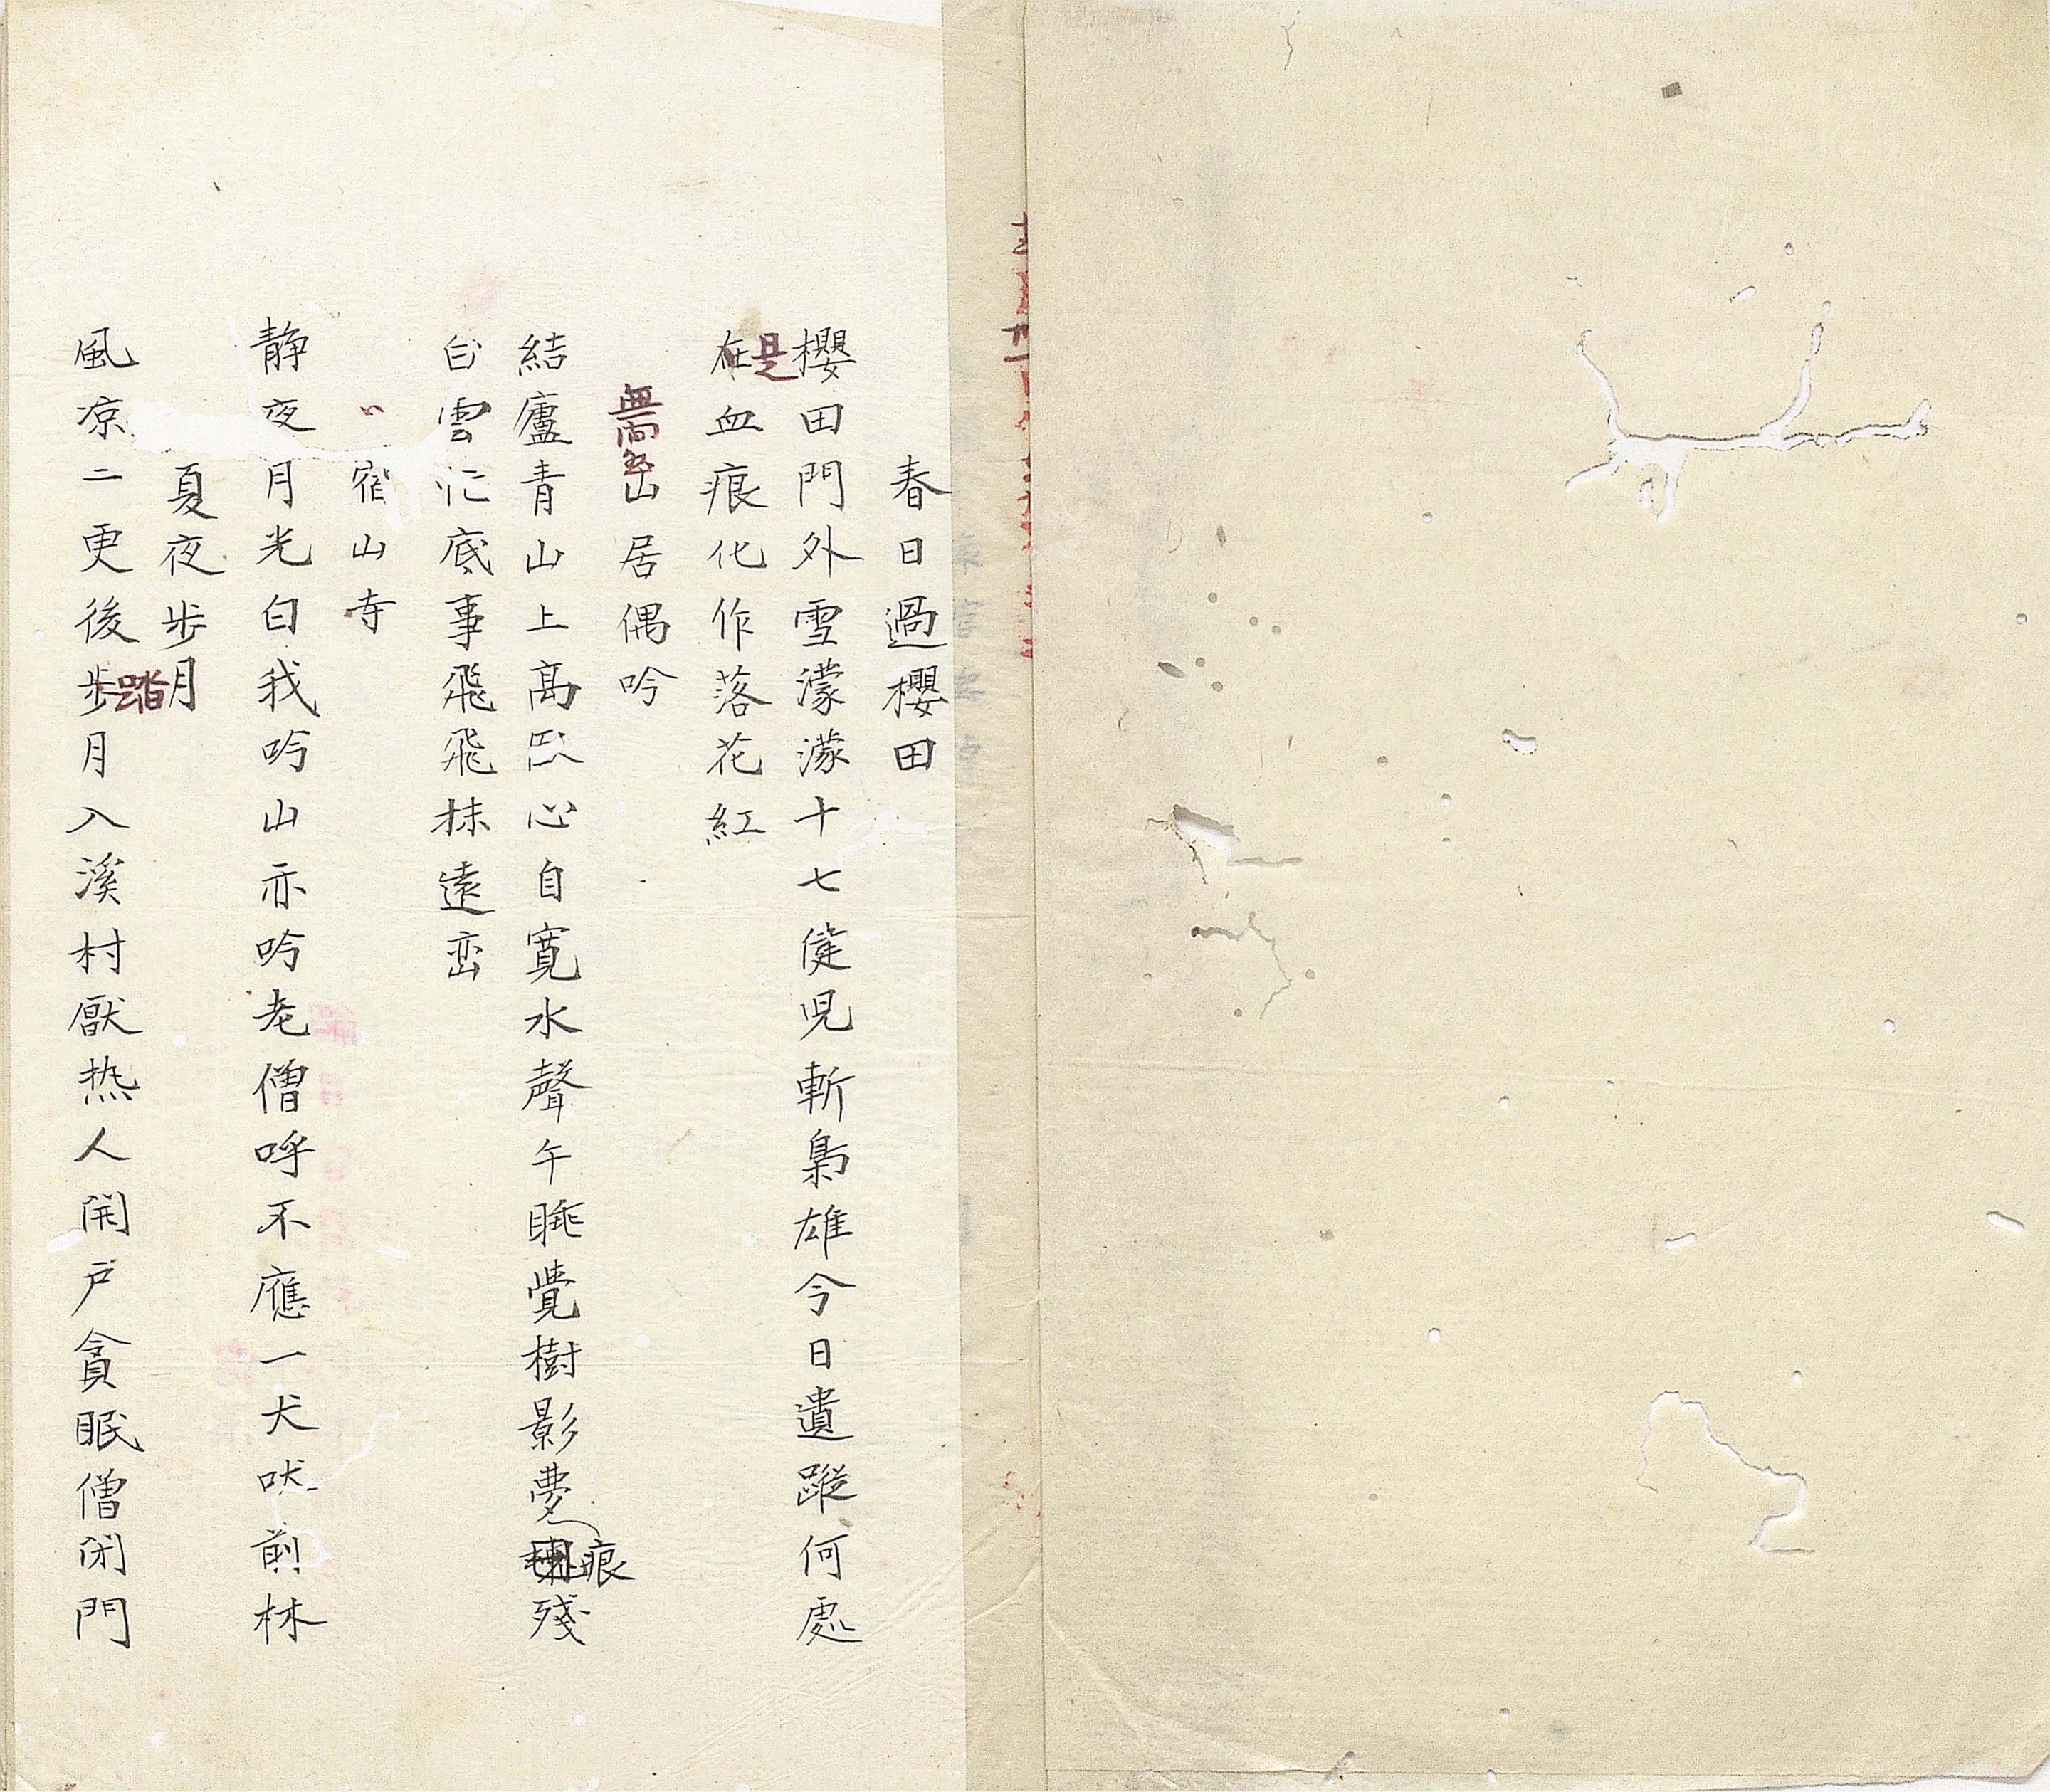 春日過櫻田
櫻田門外雪濛濛十七健児斬梟雄今日遺蹤何處
在血痕化作落花紅
是
山居偶吟
結廬青山上高臥心自寛水聲午睡覺樹影夢殘
痕
白雲忙底事飛飛抹遠巒
宿山寺
静夜月光白我吟山亦吟老僧呼不應一犬吠前林
夏夜歩月
風凉二更後歩月入溪村厭热人開戸貪眠僧閉門
踏